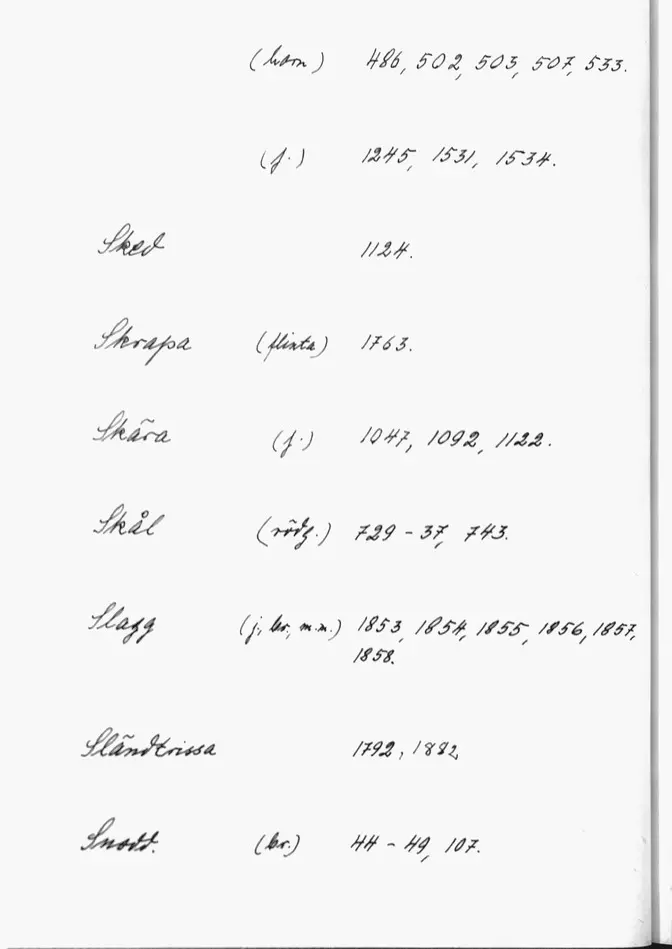 (horn) 486, 502, 503, 507, 533.
(j.) 1245, 1531, 1534.
Sked 1124.
Skrapa (flinta) 1763.
Skära (j.) 1047, 1092, 1122.
Skål (rödg.) 729 - 37, 743.
Slagg (j, br, m.m.) 1853, 1854, 1855, 1856, 1857,
1858.
Sländtrissa 1792, 1882,
Snodd. (br.) 44 - 49, 107.